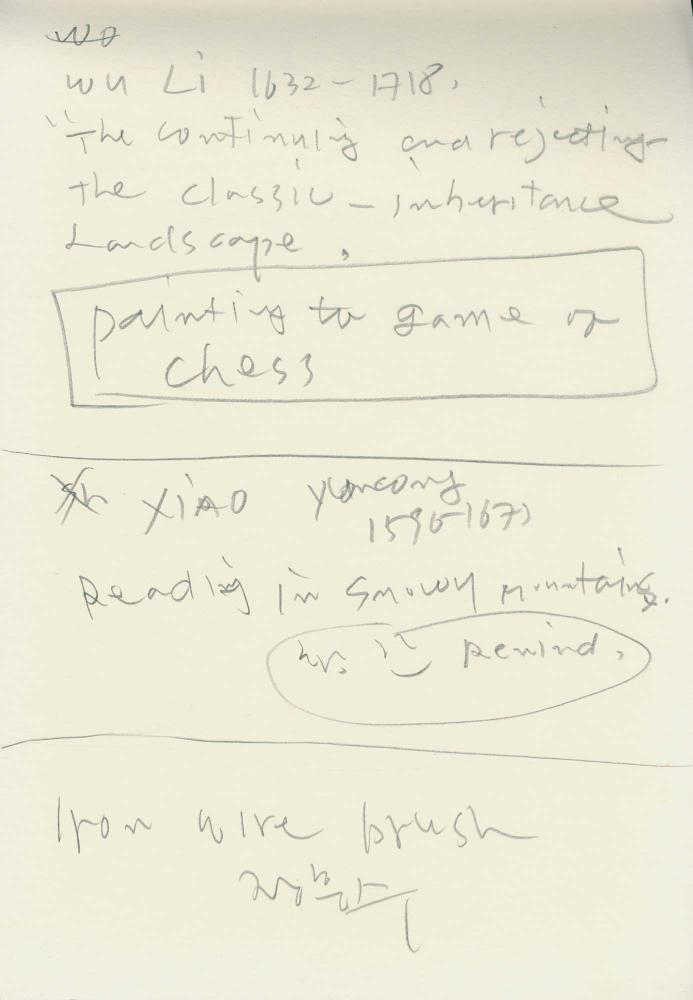 Wu Li 1632-1718.
"The continuing and rejecting
the classic - inheritance
Landscape.
painting to game or
chess
XiAO yuncong
1596-1673
Reading in Snowy mountains.
Remind.
Iron wire brush